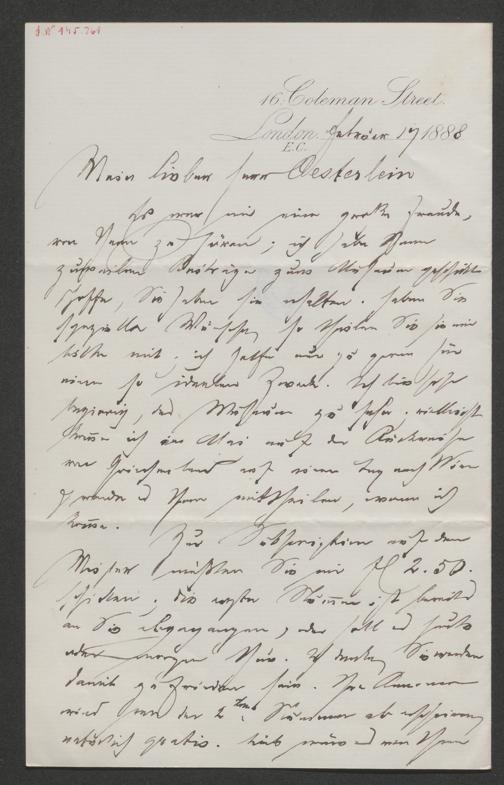 16. Coleman Street.
London. Februar 17 1888
E.C.
Mein lieber Herr Oesterlein
Es war mir eine große Freude,
von Ihnen zu hören; ich habe Ihnen
zuweilen Beiträge zum Museum geschickt
hoffe, Sie haben sie erhalten. Haben Sie
spezielle Wünsche, so theilen Sie sie mir
bitte mit. ich helfe nur zu gerne für
einen so idealen Zweck. Ich bin sehr
begierig, das Museum zu sehen. vielleicht
komme ich im Mai auf der Rückreise
von Griechenland auf einen Tag nach Wien
Ihnen mittheilen, wann ich
komme.
Zur Subscription auf den
Meister müßten Sie mir fl 2.50.
schicken. die erste Nummer ist bereits
an Sie abgegangen, oder soll es heute
oder morgen thun. Ich denke, Sie werden
damit zufrieden sein. Ihre Annonce
wird von der 2ten Nummer ab erscheinen
natürlich gratis. Lieb wäre es von Ihnen